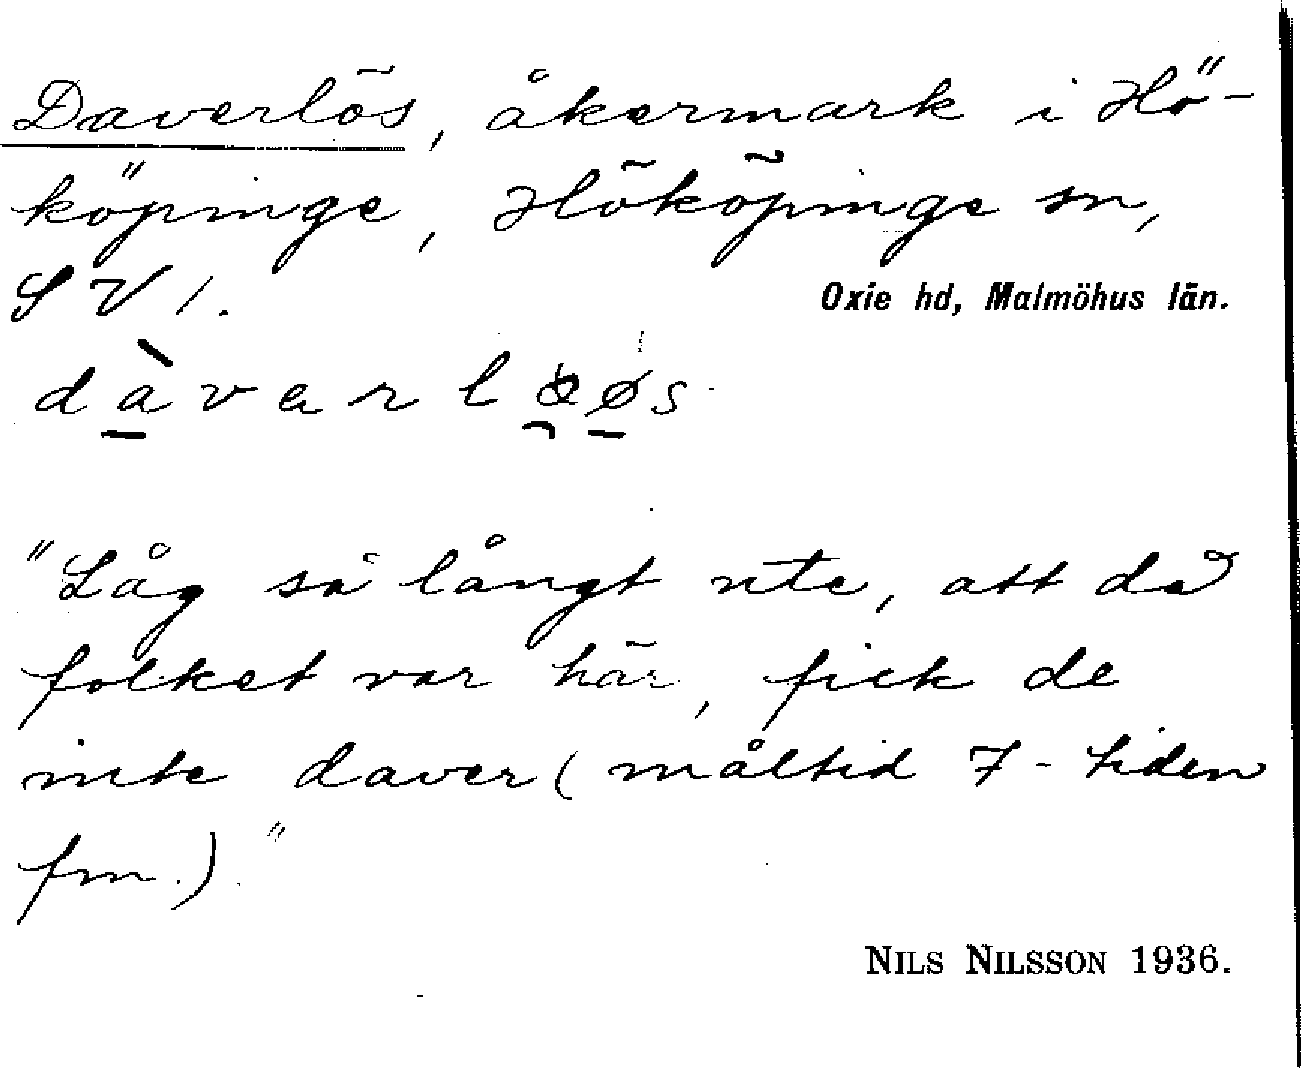 Daverlös, åkermark i Hö-
köpinge, Hököpinge sn,
SV 1.
Oxie hd, Malmöhus län.
"Låg så långt ute, att då
folket var här, fick de
inte daver (måltid 7-tiden
fm.)."
NILS NILSSON 1936.